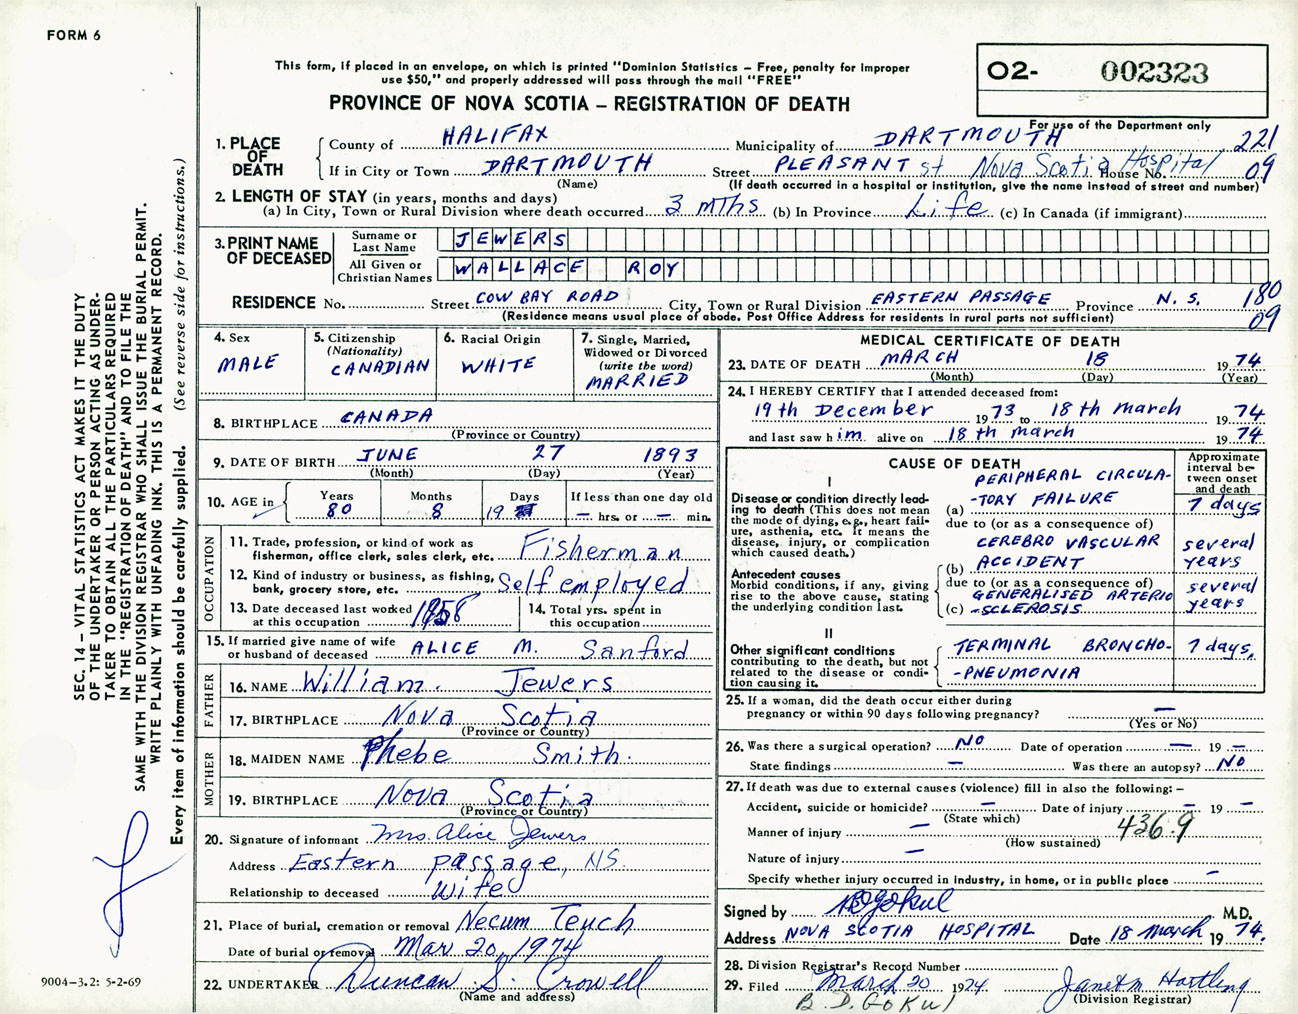 FORM 6
This form, if placed in an envelope, on which is printed "Dominion Statistics – Free, penalty for improper
use $50," and properly addressed will pass through the mail "FREE"
O2- 002323
PROVINCE OF NOVA SCOTIA – REGISTRATION OF DEATH
For use of the Department only
1. PLACE OF DEATH
County of HALIFAX Municipality of DARTMOUTH 221
If in City or Town DARTMOUTH Street PLEASANT st Nova Scotia Hospital House No. 09
(Name) (If death occurred in a hospital or institution, give the name instead of street and number)
2. LENGTH OF STAY (in years, months and days)
(a) In City, Town or Rural Division where death occurred 3 mths (b) In Province Life (c) In Canada (if immigrant)
3. PRINT NAME OF DECEASED
Surname or Last Name JEWERS
All Given or Christian Names WALLACE ROY
RESIDENCE No. Street COW BAY ROAD City, Town or Rural Division EASTERN PASSAGE Province N. S. 180
(Residence means usual place of abode. Post Office Address for residents in rural parts not sufficient) 09
4. Sex MALE
5. Citizenship (Nationality) CANADIAN
6. Racial Origin WHITE
7. Single, Married, Widowed or Divorced (write the word) MARRIED
8. BIRTHPLACE CANADA
(Province or Country)
9. DATE OF BIRTH JUNE 27 1893
(Month) (Day) (Year)
10. AGE in Years 80 Months 8 Days 19 If less than one day old – hrs. or – min.
OCCUPATION
11. Trade, profession, or kind of work as fisherman, office clerk, sales clerk, etc. Fisherman
12. Kind of industry or business, as fishing, bank, grocery store, etc. Self employed
13. Date deceased last worked at this occupation 1958
14. Total yrs. spent in this occupation
15. If married give name of wife or husband of deceased ALICE M. Sanford
FATHER
16. NAME William. Jewers
17. BIRTHPLACE Nova Scotia
(Province or Country)
MOTHER
18. MAIDEN NAME Phebe Smith.
19. BIRTHPLACE Nova Scotia
(Province or Country)
20. Signature of informant Mrs. Alice Jewers
Address Eastern passage, NS.
Relationship to deceased wife
21. Place of burial, cremation or removal Necum Teuch
Date of burial or removal Mar 20, 1974
22. UNDERTAKER Duncan S. Crowell
(Name and address)
MEDICAL CERTIFICATE OF DEATH
23. DATE OF DEATH MARCH 18 1974
(Month) (Day) (Year)
24. I HEREBY CERTIFY that I attended deceased from:
19th December 1973 to 18th march 1974
and last saw him alive on 18th march 1974
CAUSE OF DEATH
Approximate interval between onset and death
I
Disease or condition directly leading to death (This does not mean the mode of dying, e.g., heart failure, asthenia, etc. It means the disease, injury, or complication which caused death.)
(a) PERIPHERAL CIRCULA-
-TORY FAILURE 7 days
due to (or as a consequence of)
Antecedent causes
Morbid conditions, if any, giving rise to the above cause, stating the underlying condition last.
(b) CEREBRO VASCULAR
ACCIDENT several years
due to (or as a consequence of)
(c) GENERALISED ARTERIO
-SCLEROSIS several years
II
Other significant conditions
contributing to the death, but not related to the disease or condition causing it.
TERMINAL BRONCHO-
-PNEUMONIA 7 days,
25. If a woman, did the death occur either during
pregnancy or within 90 days following pregnancy? –
(Yes or No)
26. Was there a surgical operation? NO Date of operation – 19 –
State findings – Was there an autopsy? NO
27. If death was due to external causes (violence) fill in also the following: –
Accident, suicide or homicide? – Date of injury – 19 –
(State which)
Manner of injury – 436.9
(How sustained)
Nature of injury –
Specify whether injury occurred in industry, in home, or in public place –
Signed by BDGokul M.D.
Address NOVA SCOTIA HOSPITAL Date 18 March 1974.
28. Division Registrar's Record Number
29. Filed March 20 1974 Janet M Hartling
B. D. GOKUL (Division Registrar)
SEC. 14 – VITAL STATISTICS ACT MAKES IT THE DUTY
OF THE UNDERTAKER OR PERSON ACTING AS UNDER-
TAKER TO OBTAIN ALL THE PARTICULARS REQUIRED
IN THE "REGISTRATION OF DEATH" AND TO FILE THE
SAME WITH THE DIVISION REGISTRAR WHO SHALL ISSUE THE BURIAL PERMIT.
WRITE PLAINLY WITH UNFADING INK. THIS IS A PERMANENT RECORD.
Every item of information should be carefully supplied. (See reverse side for instructions.)
9004–3.2: 5-2-69